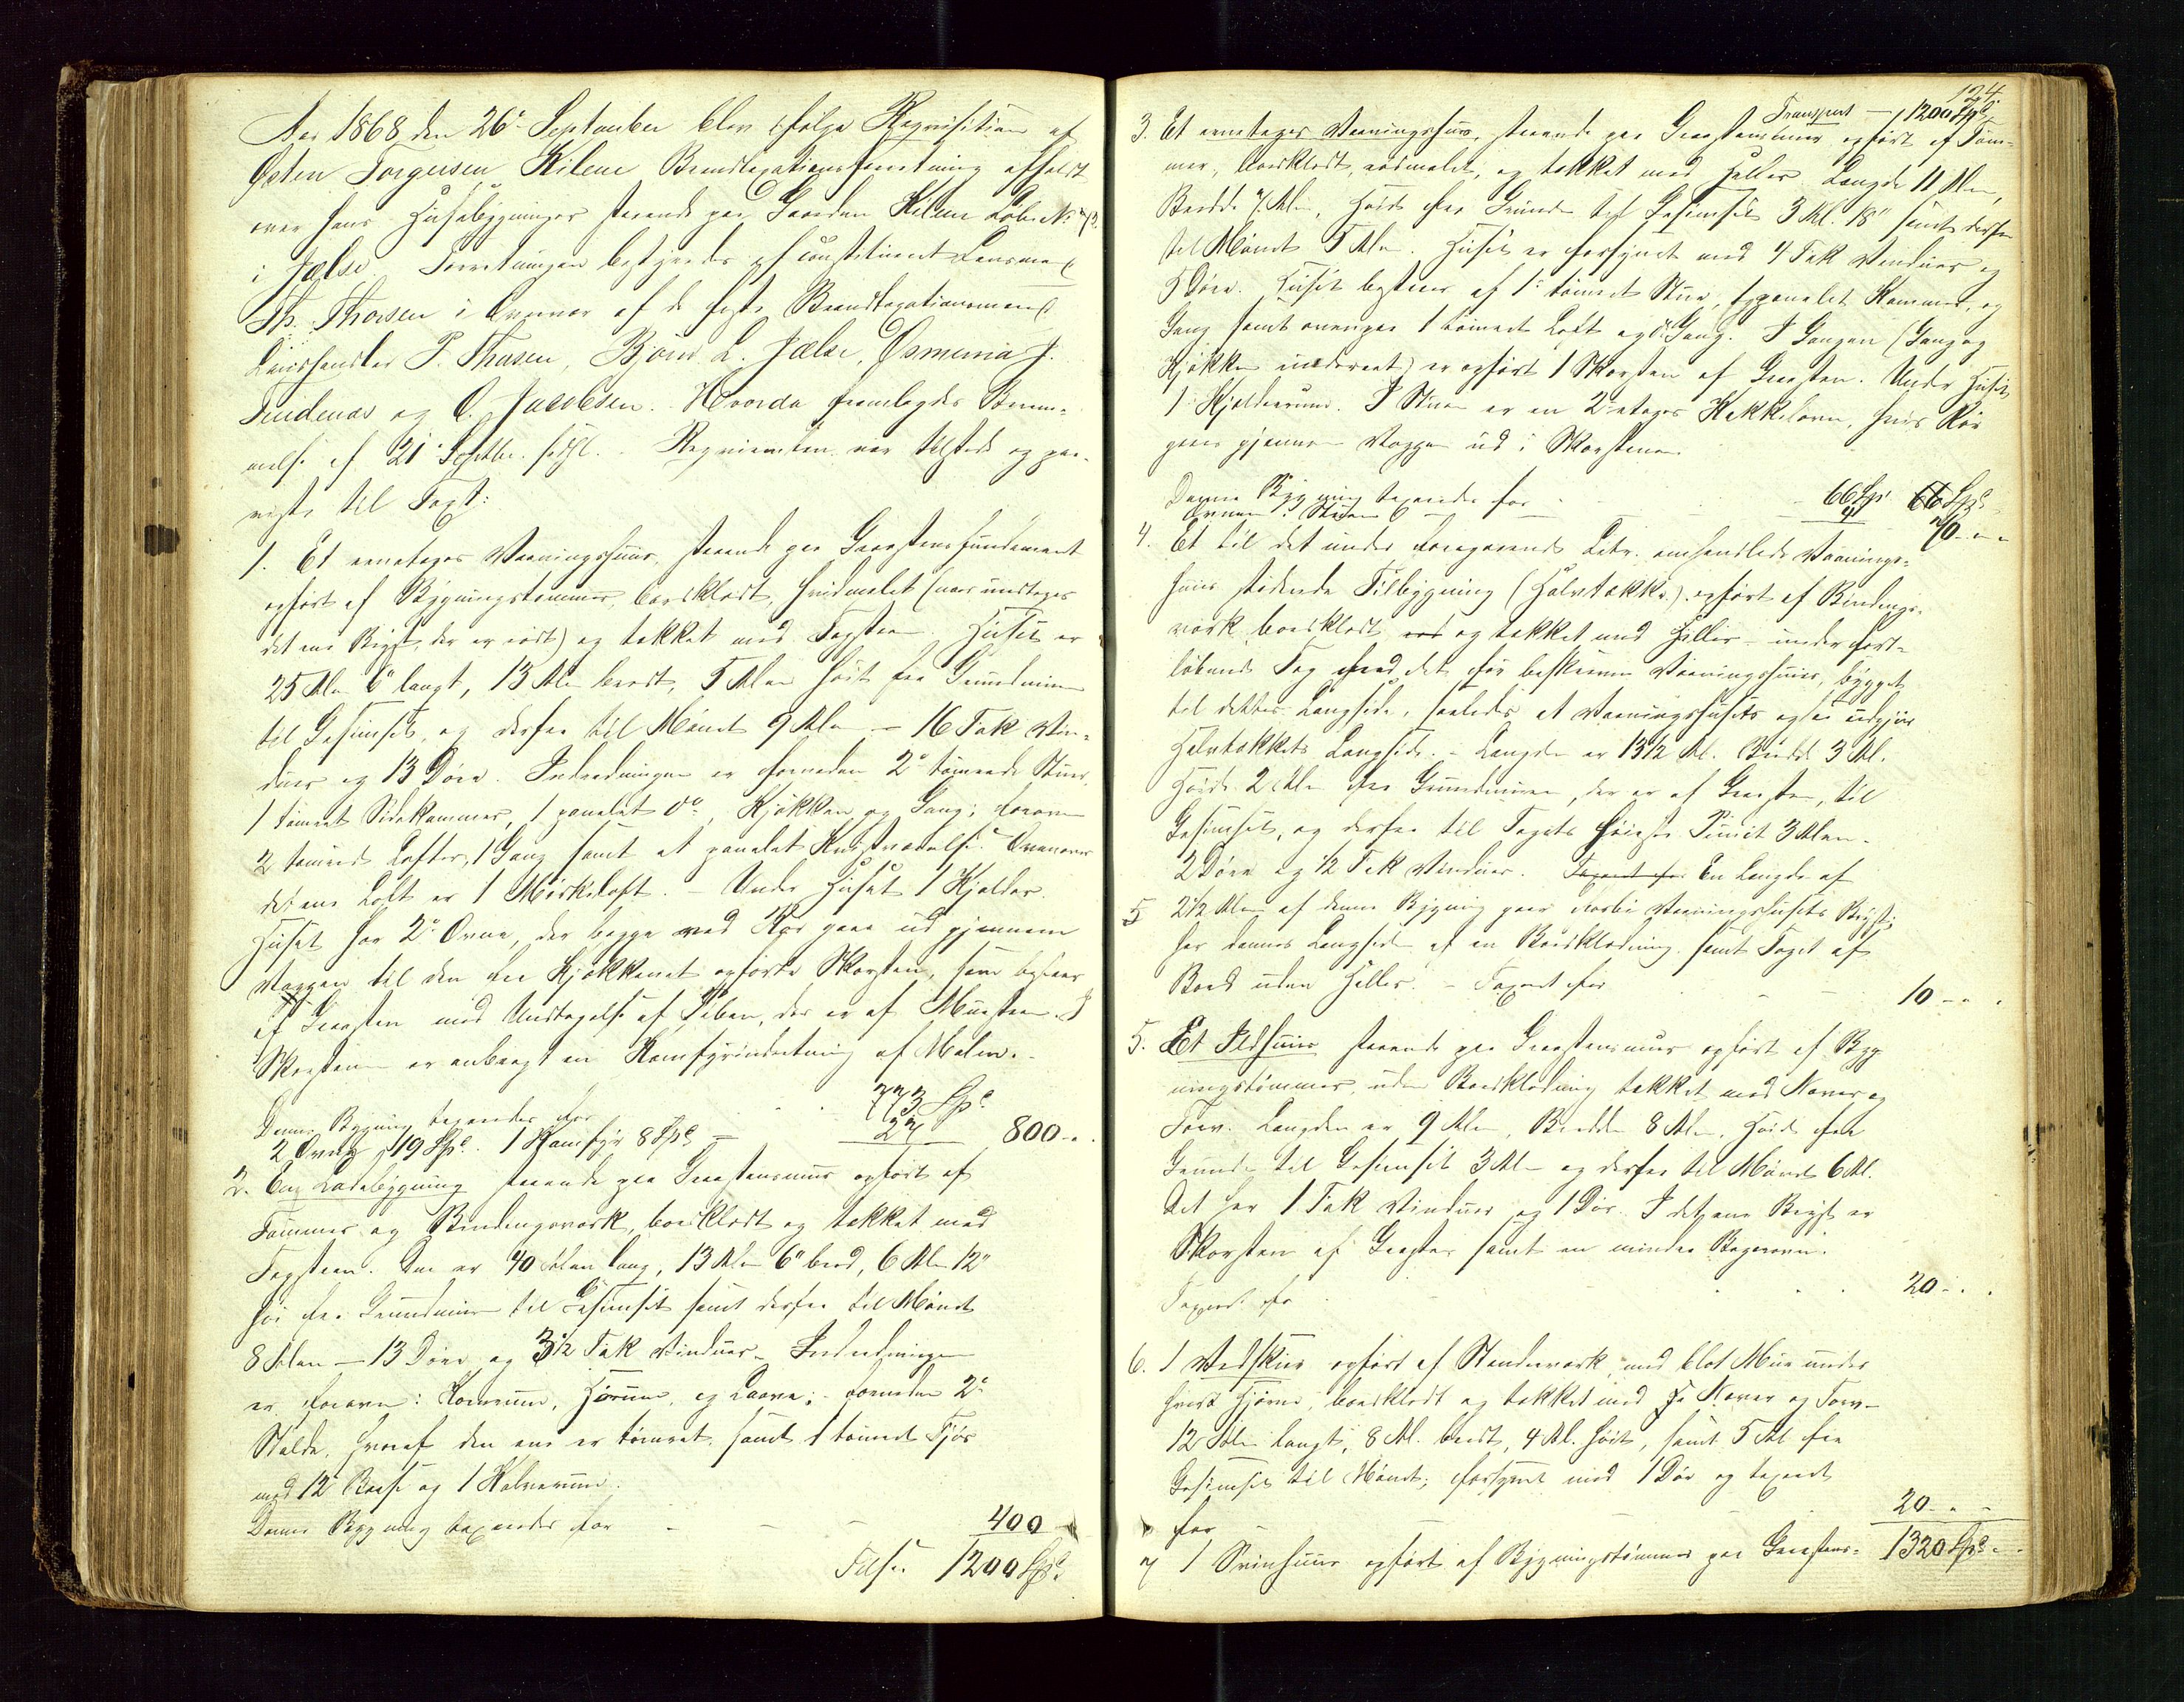 Aar 1868 den 26de September blev ifølge Reqvisition af
Østen Torgersen Kilene Brandtaxationsforretning afholdt
over hans Huusebygninger staaende paa Gaarden Kilene Løbe No
i Jælse. Forretningen bestyredes af constitueret Lensmand
Th. Thorsen i Overvær af de faste Brandtaxationsmænd
P. Thusen, Bjørn L. Jælse, Osmund J.
Tindenæs og O. Jacobsen. Hvorda fremlagdes Bevem-
melse af 21de Septbr. sidstl. Reqvirenten var tilstede og paa-
viste til Taxt:
1. Et eenetages Vaaningshuus, staaende paa Graasteensfundament
opført af Bygningstømmer, bordklædt, hvidmalet (naar undtages
det ene Bryst, der er rødt) og tækket med Tagsteen. Huset er
25 Alen 6" langt, 13 Alen bredt, 5 Alen høit fra Grundmuren
til Gesimset, og derfra til Mønet 9 Alen — 16 Fak Vin-
duer og 13 Døre. Indredningen er forneden 2de tømrede Stuer
1 tømret Sidekammer, 1 panelet do, Kjøkken og Gang; foroven
2 tømrede Lofter, 1 Gang samt et panelet Kvistværelse. Ovenover
det ene Loft er 1 Mørkeloft. – Under Huset 1 Kjelder.
Huset har 2de Ovne, der begge med Rør gaar ud gjennem
Væggen til den fra Kjøkkenet opførte Skorsten, som bestaar
af Graasten med Undtagelse af Piben, der er af Muursteen. I
Skorstenen er anbragt en Komfyrindretning af Malm.
Denne Bygning taxeredes for 773 Spd.
2 Ovne 19 Spd. 1 Komfyr 8 Spd. — 27 800 - "
2. En Ladebygning staaende paa Graasteensmuur opført af
Tømmer og Bindingsværk, bordklædt og tækket med
Tagsteen. Den er 40 Alen lang, 13 Alen 6" bred, 6 Alen 12"
høi fra Grundmuren til Gesimset samt derfra til Mønet
8 Alen — 13 Døre og 3½ Fak Vinduer. Indredningen
er foroven: Kornrum, Hørum, og Laave; forneden 2de
Stalde, hvoraf den ene er tømret, samt 1 tømret Fjøs
med 12 Baase og 1 Kalverum.
Denne Bygning taxeredes for - - - 400 -
Tils: 1200 Spd.
124
Transport — 1200 Spd.
3. Et eenetages Vaaningshuus, staaende paa Graasteensmuur opført af Tøm-
mer, bordklædt, rødmalet, og tækket med Heller. Længde 11 Alen,
Bredde 7 Alen, Høide fra Grunden til Gesimset 3 Al. 18" samt derfra
til Mønet 5 Alen. Huset er forsynet med 4 Fak Vinduer og
5 Døre. Huset bestaar af 1 tømret Stue, 1 panelet Kammer, og
Gang samt ovenpaa 1 tømret Loft og do Gang. I Gangen (Gang og
Kjøkken inderent) er opført 1 Skorsten af Graasten. Under Huset
1 Kjelderrum. I Stuen er en 2 etages Kakkelovn, hvis Rør
gaar gjennem Væggen ud i Skorstenen.
Denne Bygning taxeredes for - - 66 Spd. 66 Spd.
Ovnen i Stuen — 4 70 - " "
4. Et til det under foregaaende Litr. omhandlede Vaanings-
huus stødende Tilbygning (Halvtække) opført af Bindings-
værk bordklædt og tækket med Heller – under fort-
løbende Tag med det før beskrevne Vaaningshuus, bygget
til dettes Langside, saaledes at Vaaningshusets ogsaa udgjør
Halvtækkets Langside. – Længden er 13½ Al. Bredde 3 Al.
Høide 2 Alen fra Grundmuren, der er af Graasten, til
Gesimset, og derfra til Tagets høieste Punct 3 Alen.
2 Døre og ½ Fak Vinduer. Taxeret for En Længde af
5 2½ Alen af denne Bygning gaar forbi Vaaningshusets Bryst;
her dannes Langsiden af en Bordklædning samt Taget af
Bord uden Heller. – Taxeret for - - 10 - " "
5. Et Ildhuus staaende paa Graasteensmuur opført af Byg-
ningstømmer, uden Bordklædning tækket med Næver og
Torv. Længden er 9 Alen, Bredden 8 Alen, Høide fra
Grunden til Gesimset 3 Alen og derfra til Mønet 6 Al.
Det har 1 Fak Vinduer og 1 Dør. I det ene Bryst er
Skorsten af Graasten samt en mindre Bagerovn.
Taxeret for - - 20 - " "
6. 1 Vedskuur opført af Standerværk med blot Muur under
hvert Hjørne, bordklædt og tækket med Næver og Torv –
12 Alen langt, 8 Al. bredt, 4 Al. høit, samt 5 Al. fra
Gesimset til Mønet; forsynet med 1 Dør og taxeret
for - - - 20 - " -
7 1 Sviinhuus opført af Bygningstømmer paa Graasteens- 1320 Spd. -